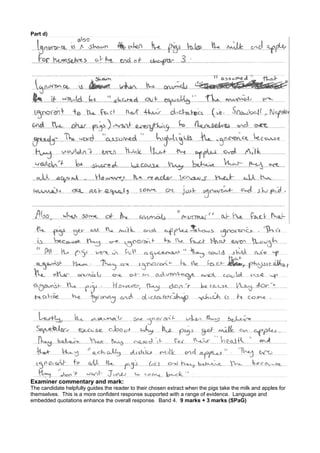 Part d)
also
Ignorance is shown when the pigs take the milk and apples
for themselves at the end of chapter 3.
Ignorance is shown when the animals "assumed" that
it would be "shared out equally" The animals are
ignorant to the fact that their dictators (i.e. Snowball, Napoleon
and the other pigs) want everything to themselves and are
greedy. The word "assumed" highlights the ignorance because
they wouldn't even think that the apples and Milk
wouldn't be shared because they believe that they are
all equal. However, the reader knows that all the
animals are not equal, some are just ignorant and stupid.
Also, when some of the animals "murmur" at the fact that
the pigs get all the milk and apples shows ignorance. This
is because they are ignorant to the fact that even though
"All the pigs were in full agreement" they could still rise up
against them. They are ignorant to the fact that, physically,
the other animals are at an advantage and could rise up
against the pigs. However, they don't because they don't
realise the tyranny and dictatorship which is to come.
Lastly, the animals are ignorant when they believe
Squealer's excuse about why the pigs get milk and apples.
They believe that they need it for their "health" and
that they "actually dislike milk and apples". They are
ignorant to all the pigs lies and they believe the because
they "don't want Jones to come back"
Examiner commentary and mark:
The candidate helpfully guides the reader to their chosen extract when the pigs take the milk and apples for
themselves. This is a more confident response supported with a range of evidence. Language and
embedded quotations enhance the overall response Band 4. 9 marks + 3 marks (SPaG)